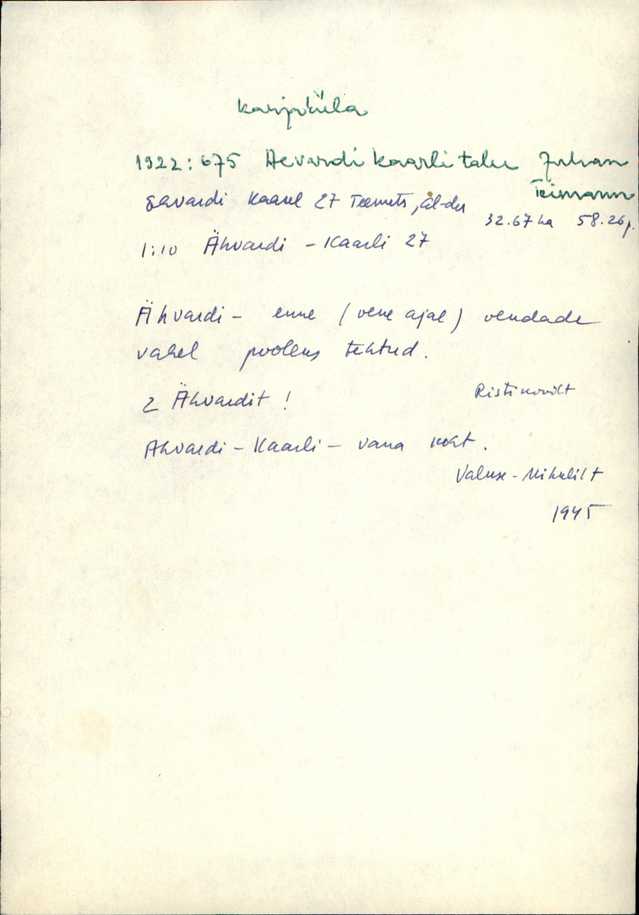 Karjaküla
1922: 675 Aevardi kaarli talu Juhan
Teimann
Kaarel 27
32.67 ha 58.26 p.
1:10 Ähvardi - Kaarli 27
Ähvardi - enne (vene ajal) vendade
vahel pooleks tehtud.
2 Ähvardit !
Ahvardi - Kaarli - vana koht.
Valuse - Mihklilt
1945